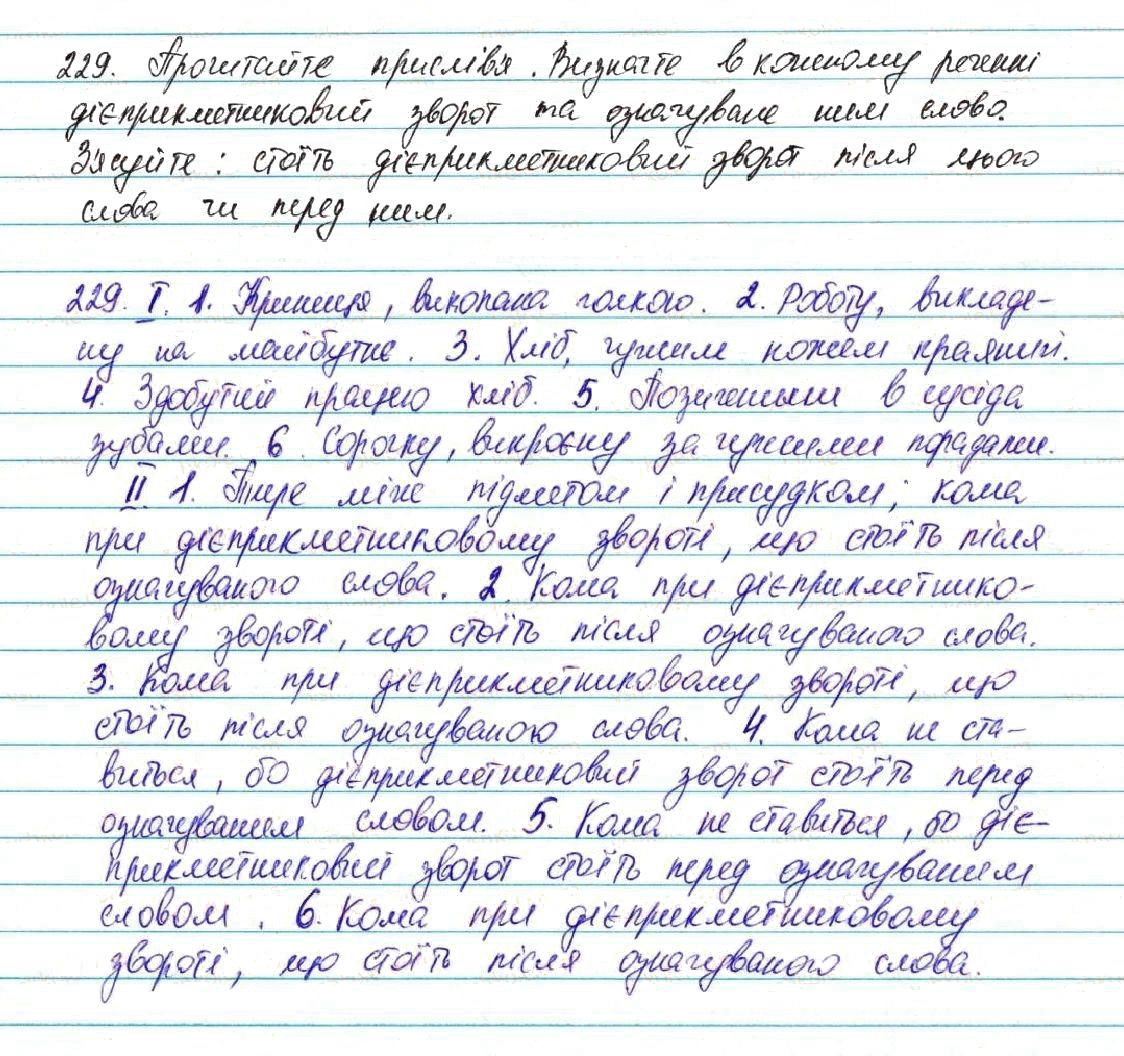 229. Прочитайте прислівя. Визначте в кожному реченні
дієприкметниковий зворот та означуване ним слово.
З'ясуйте: стоїть дієприкметниковий зворот після цього
слова чи перед ним.
229. I. 1. Криниця, викопана голкою. 2. Роботу, викладе-
ну на майбутнє. 3. Хліб, чужим ножем краяний.
4. Здобутий працею хліб. 5. Позиченими в сусіда
зубами. 6. Сорочку, викроєну за чужими порадами.
II. 1. Тире між підметом і присудком; кома
при дієприкметниковому звороті, що стоїть після
означуваного слова. 2. Кома при дієприкметнико-
вому звороті, що стоїть після означуваного слова.
3. Кома при дієприкметниковому звороті, що
стоїть після означуваного слова. 4. Кома не ста-
виться, бо дієприкметниковий зворот стоїть перед
означуваним словом. 5. Кома не ставиться, бо діє-
прикметниковий зворот стоїть перед означуваним
словом. 6. Кома при дієприкметниковому
звороті, що стоїть після означуваного слова.